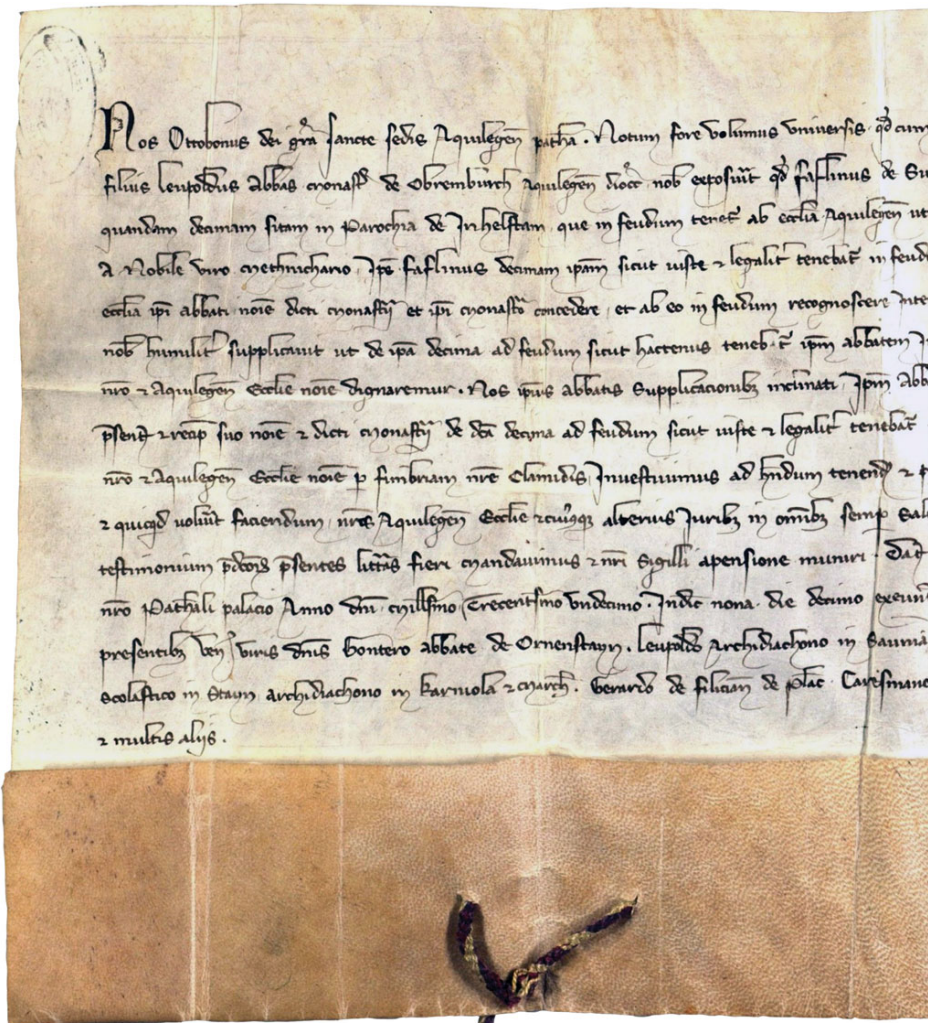 Nos Ottobonus dei gra sancte sedis Aquilegen patha. Notum fore volumus universis. qd cum
filius Leupoldus Abbas monast de Obremburch Aquilegen dioc nob exposuit qd faslinus de
quandam decimam sitam in Parochia de que in feudum tenet ab ecclia Aquilegen ut
A Nobile viro Ipe faslinus decimam ipam sicut iuste et legalit tenebat in
ecclia ipi abbati noie dicti monastii et ipi monasto concedere et ab eo in feudum recognoscere
nob humilit supplicavit ut de ipa decima ad feudum sicut hactenus teneb t ipm abbatem
nro et Aquilegen Ecclie noie dignaremur. Nos ipius abbatis Supplicacionibz inclinati Ipm
psent et recip suo noie et dicti monastii de dca decima ad feudum sicut iuste et legalit tenebat
nro et Aquilegen Ecclie noie p fimbriam nre Clamidis Investivimus ad hndum tenend et
et quicqd voluit faciendum nris Aquilegen Ecclie et cuiusqz alterius Juribz in omibz semp
testimonium pdcor psentes litteras fieri mandavimus et nri Sigilli apensione muniri. Dat
nro Pathali palacio Anno dni millesimo Trecentesimo undecimo. Indic nona. die decimo
presentibz ven viris dnis Gontero abbate de Ornenstayn. Leupoldo Archidiachono in
scolastico in Stayn archidiachono in Karniola et march. Gerardo de
et multis aliis.